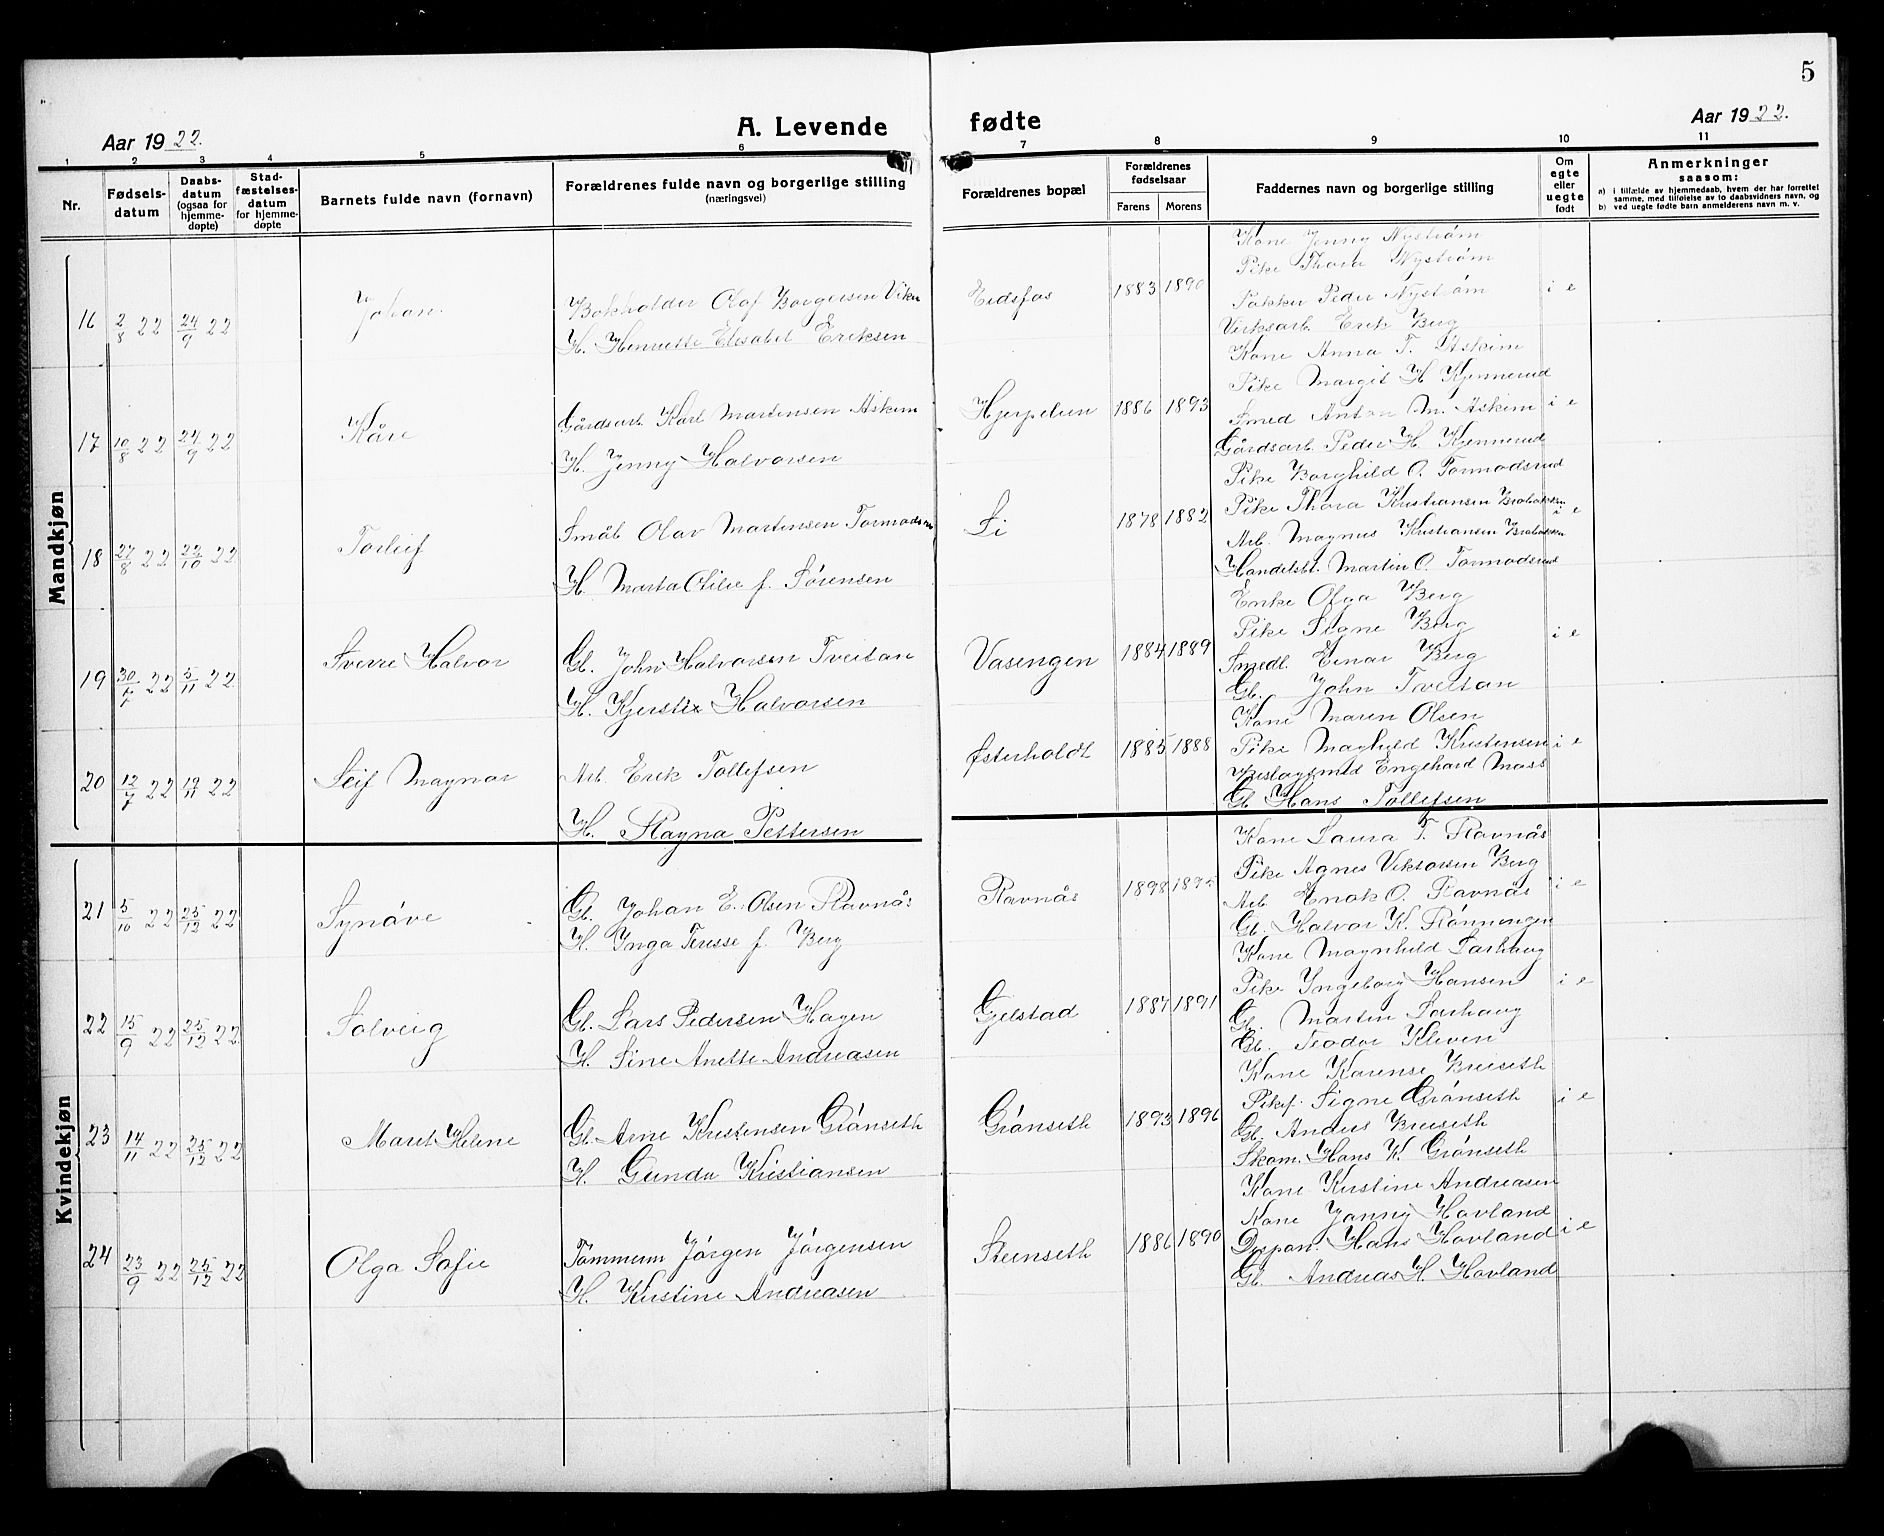 5
Aar 1922.
A. Levende
fødte
Aar 1922.
1
2
3
4
5
6
7
8
9
10
11
Nr.
Fødsels-
datum
Daabs-
datum
(ogsaa for
hjemme-
døpte)
Stad-
fæstelses-
datum
for hjemme-
døpte
Barnets fulde navn (fornavn)
Forældrenes fulde navn og borgerlige stilling
(næringsvei)
Forældrenes bopæl
Forældrenes
fødselsaar
Farens
Morens
Faddernes navn og borgerlige stilling
Om
egte
eller
uegte
født
Anmerkninger
saasom:
a) i tilfælde av hjemmedaab, hvem der har forrettet
samme, med tilføielse av to daabsvidners navn, og
b) ved uegte fødte barn anmelderens navn m. v.
Mandkjøn
16 2/8 22 24/9 22 Johan
Bokholder Olaf Borgersen Viker
H. Henriette Elisabet Eriksen
Eidsfos 1883 1890
Kone Jenny Nystrøm
Pike Thora Nystrøm
Pakker Peder Nystrøm
Verksarb. Erik Berg
i e
17 10/8 22 24/9 22 Kåre
Gårdsarb. Karl Martensen Askim
H. Jenny Halvorsen
Hjerpelun 1886 1893
Kone Anna T. Askim
Pike Margit H. Kjennerud
Smed Anton M. Askim
Gårdsarb. Peder H. Kjennerud
i e
18 27/8 22 22/10 22 Torleif
Småb. Olav Martensen Tormodsru
H. Marta Otilie f. Sørensen
Li 1878 1882
Pike Borghild O. Tormodsrud
Pike Thora Kristiansen Brobakken
Arb. Magnus Kristiansen Brobakken
Handelsbt. Martin O. Tormodsrud
i e
19 30/7 22 5/11 22 Sverre Halvor
Gb. John Halvorsen Tveitan
H. Kjersti Halvorsen
Vasengen 1884 1889
Enke Olga Berg
Pike Signe Berg
Smedl. Einar Berg
Gb. John Tveitan
i e
20 12/7 22 19/11 22 Leif Magnar
Arb. Erik Tollefsen
H. Ragna Pettersen
Østerholdt 1885 1888
Kone Maren Olsen
Pike Maghild Kristensen
Engehard Moss
Gb. Hans Tollefsen
i e
Kvindekjøn
21 5/10 22 25/12 22 Synøve
Gb. Johan E. Olsen Ravnås
H. Inga Terese f. Berg
Ravnås 1898 1895
Kone Laura T. Ravnås
Pike Agnes Viktorsen Berg
Arb. Enok O. Ravnås
Gb. Halvor K. Rønningen
i e
22 15/9 22 25/12 22 Solveig
Gb. Lars Pedersen Hagen
H. Sine Anette Andreasen
Gjelstad 1887 1891
Kone Magnhild Sørhaug
Pike Ingeborg Hansen
Gb. Martin Sørhaug
Gb. Teodor Kleven
i e
23 14/11 22 25/12 22 Maret Helene
Gb. Arne Kristensen Grønseth
H. Gunda Kristiansen
Grønseth 1893 1896
Kone Karense Breiseth
Pike Signe Grønseth
Gb. Anders Breiseth
Skom. Hans K. Grønseth
i e
24 23/9 22 25/12 22 Olga Sofie
Tømmerm Jørgen Jørgensen
H. Kristine Andreasen
Steinseth 1886 1890
Kone Kristine Andreasen
Kone Jenny Hovland
Dispon. Hans Hovland
Gb. Andreas H. Hovland
i e